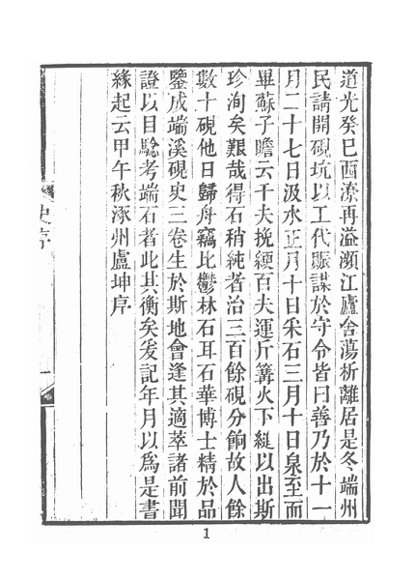 道光癸巳酉潦再溢瀕江廬舍蕩析離居是冬端州
民請開硯坑以工代賑謀於守令皆曰善乃於十一
月二十七日汲水正月十日采石三月十日泉至而
畢蘇子瞻云千夫挽綆百夫運斤篝火下縋以出斯
珍洵矣艱哉得石稍純者治三百餘硯分餉故人餘
數十硯他日歸舟竊比鬱林石耳石華博士精於品
鑒成端溪硯史三卷生於斯地會逢其適萃諸前聞
證以目驗考端石者此其衡矣爰記年月以為是書
緣起云甲午秋涿州盧坤序
史序
1